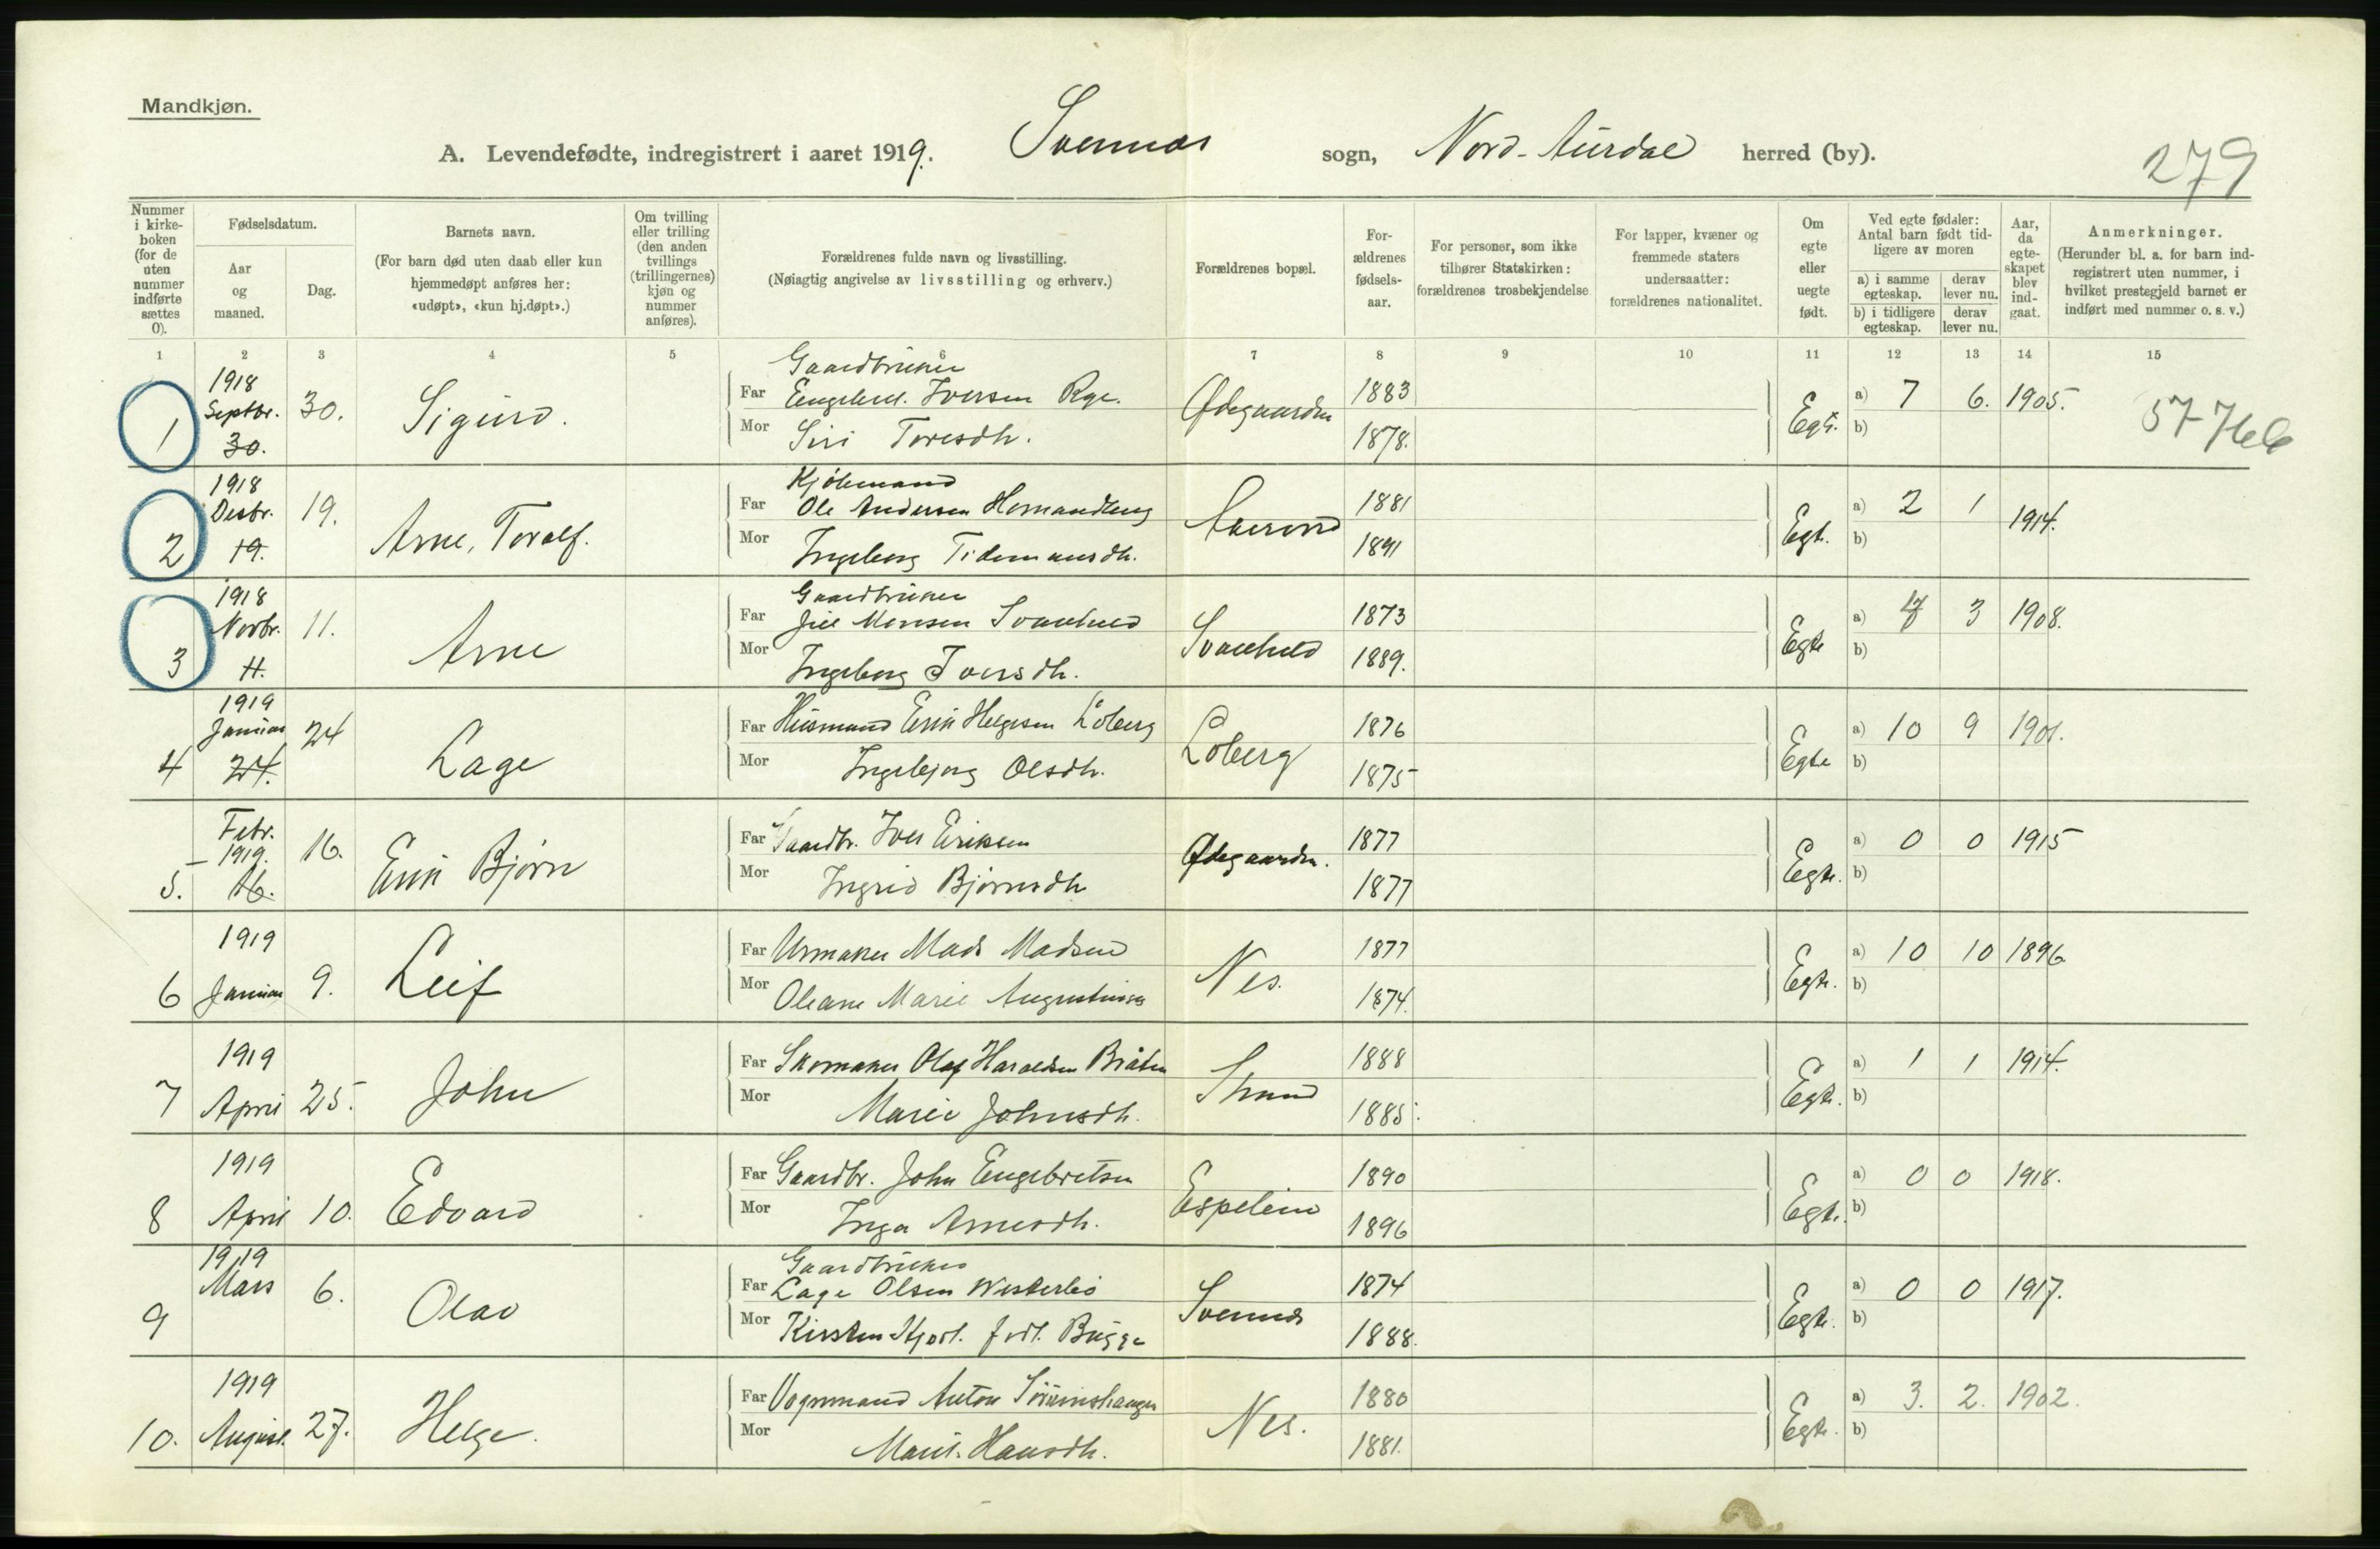 Mandkjøn.
A. Levendefødte, indregistrert i aaret 1919. Svennes sogn, Nord-Aurdal herred (by).
279
Nummer i kirke-boken (for de uten nummer indførte sættes 0).
Fødselsdatum.
Aar og maaned.
Dag.
Barnets navn.
(For barn død uten daab eller kun hjemmedøpt anføres her: «udøpt», «kun hj.døpt».)
Om tvilling eller trilling (den anden tvillings (trillingernes) kjøn og nummer anføres).
Forældrenes fulde navn og livsstilling.
(Nøiagtig angivelse av livsstilling og erhverv.)
Forældrenes bopæl.
For-ældrenes fødsels-aar.
For personer, som ikke tilhører Statskirken: forældrenes trosbekjendelse
For lapper, kvæner og fremmede staters undersaatter: forældrenes nationalitet.
Om egte eller uegte født.
Ved egte fødsler: Antal barn født tid-ligere av moren
a) i samme egteskap.
derav lever nu.
b) i tidligere egteskap.
derav lever nu.
Aar, da egte-skapet blev ind-gaat.
Anmerkninger.
(Herunder bl. a. for barn ind-registrert uten nummer, i hvilket prestegjeld barnet er indført med nummer o. s. v.)
1 2 3 4 5 6 7 8 9 10 11 12 13 14 15
Gaardbruker
1 1918 Septbr. 30. 30. Sigurd. Far Engebret Iversen Rge. Ødegaarden 1883 Egt. a) 7 6. 1905.
Mor Siri Toresdh. 1878. b)
2 1918 Desbr. 19. 19. Arne, Toralf. Far Ole Andersen 1881 Egt. a) 2 1 1914.
Mor Ingeborg Tidemansdh. 1891 b)
Gaardbruker
3 1918 Novbr. 11. 11. Arne Far Monsen Svanheld Svanheld 1873 Egte a) 3 1908.
Mor Ingeborg Iversdh. 1889. b)
4 1919 Januar 24. 24 Lage Far Husmand Erik Helgesen Loberg Loberg 1876 Egte a) 10 9 1901.
Mor Ingebjørg Olsdh. 1875 b)
5. Febr. 1919. 16. 16. Erik Bjørn Far Gaardbr. Iver Eriksen Ødegaarden. 1877 Egte. a) 0 0 1915
Mor Ingrid Bjørnsdh 1877 b)
6 1919 Januar 9. Leif Far Urmaker Mads Madsen Nes. 1877 Egte. a) 10 10 1896
Mor Oleane Marie Augustinsen 1874. b)
7 1919 April 25. John Far Skomaker Olaf Haraldsen Bråten Strand 1888 Egte. a) 1 1 1914.
Mor Marie Johnsdh. 1885. b)
8 1919 April 10. Edvard Far Gaardbr. John Engebretsen Espelien 1890 Egte. a) 0 0 1918.
Mor Inga Arnesdh. 1896 b)
Gaardbruker
9 1919 Mars 6. Olav Far Lage Olsen Westerlei Svennes 1874 Egte. a) 0 0 1917.
Mor Kirsten født Bugge 1888. b)
10. 1919 August. 27. Helge. Far Vognmand Anton Nes. 1880 Egte. a) 3. 2. 1902.
Mor Marit Hansdh. 1881. b)